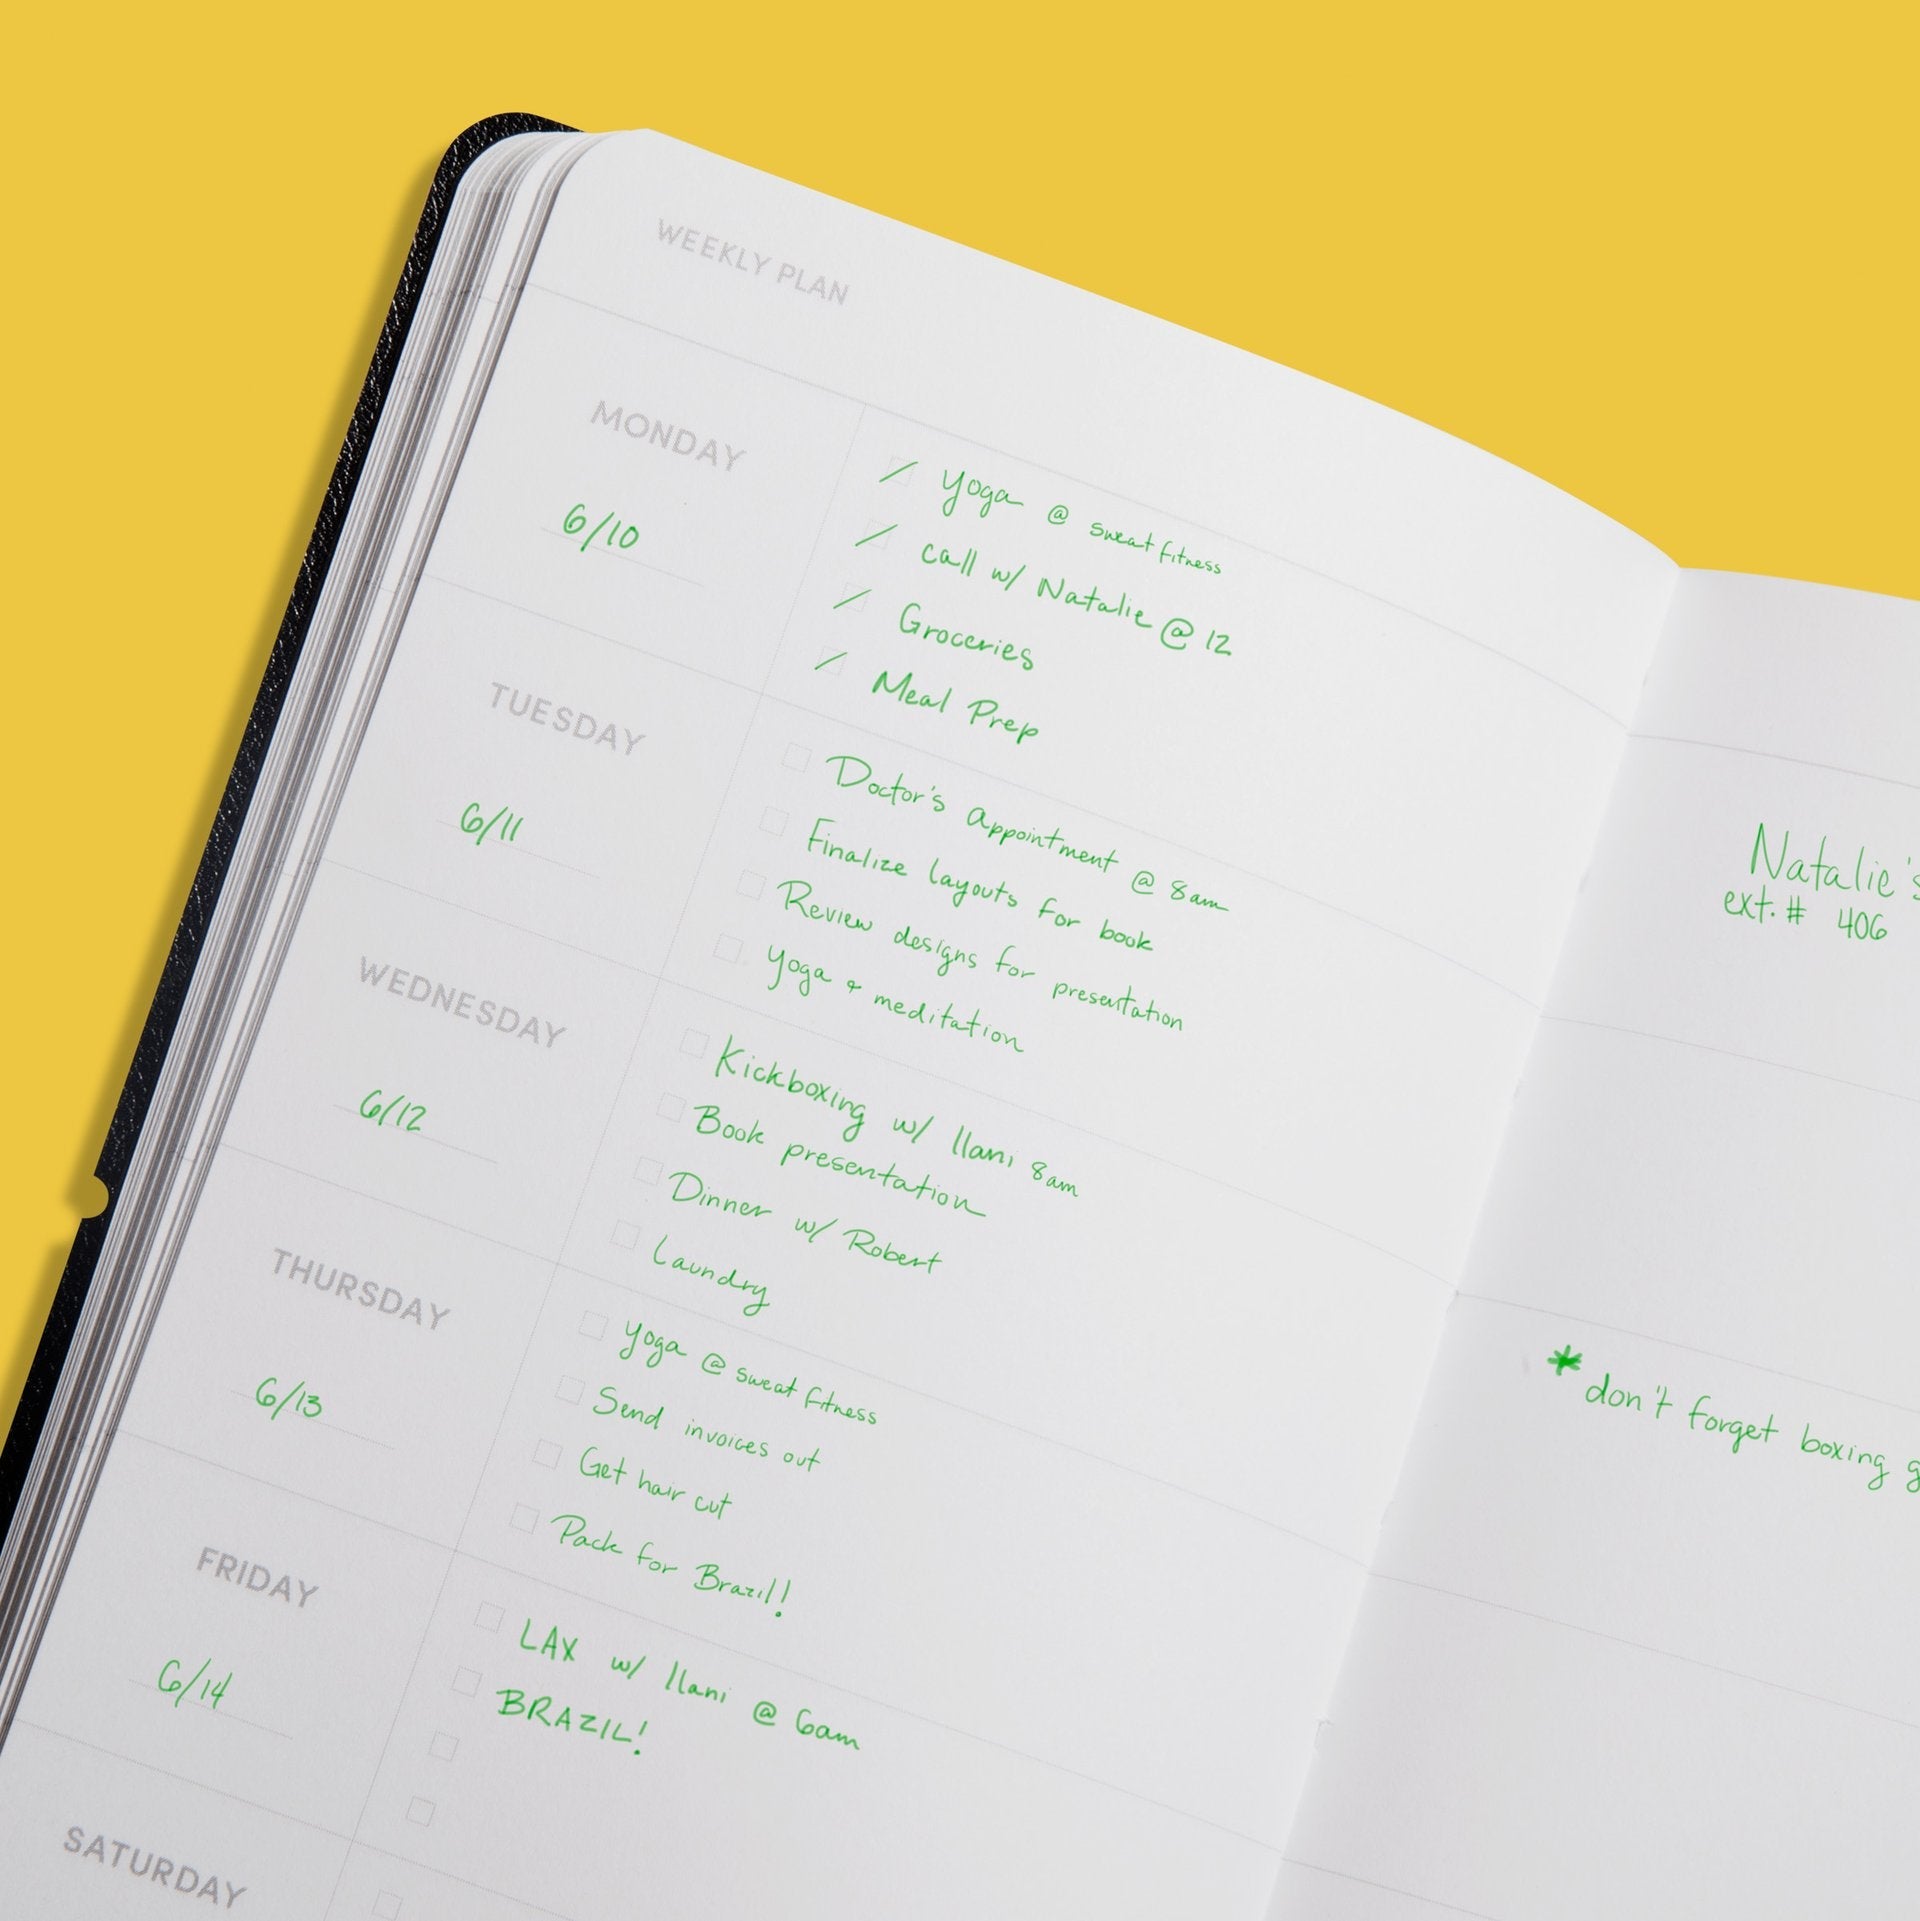 WEEKLY PLAN
MONDAY
6/10
Yoga @ sweat fitness
call w/ Natalie @ 12
Groceries
Meal Prep
TUESDAY
6/11
Doctor's appointment @ 8am
Finalize layouts for book
Review designs for presentation
Yoga + meditation
WEDNESDAY
6/12
Kickboxing w/ Ilani 8am
Book presentation
Dinner w/ Robert
Laundry
THURSDAY
6/13
Yoga @ sweat fitness
Send invoices out
Get hair cut
Pack for Brazil!
FRIDAY
6/14
LAX w/ Ilani @ 6am
BRAZIL!
SATURDAY
Natalie's
ext. # 406
* don't forget boxing